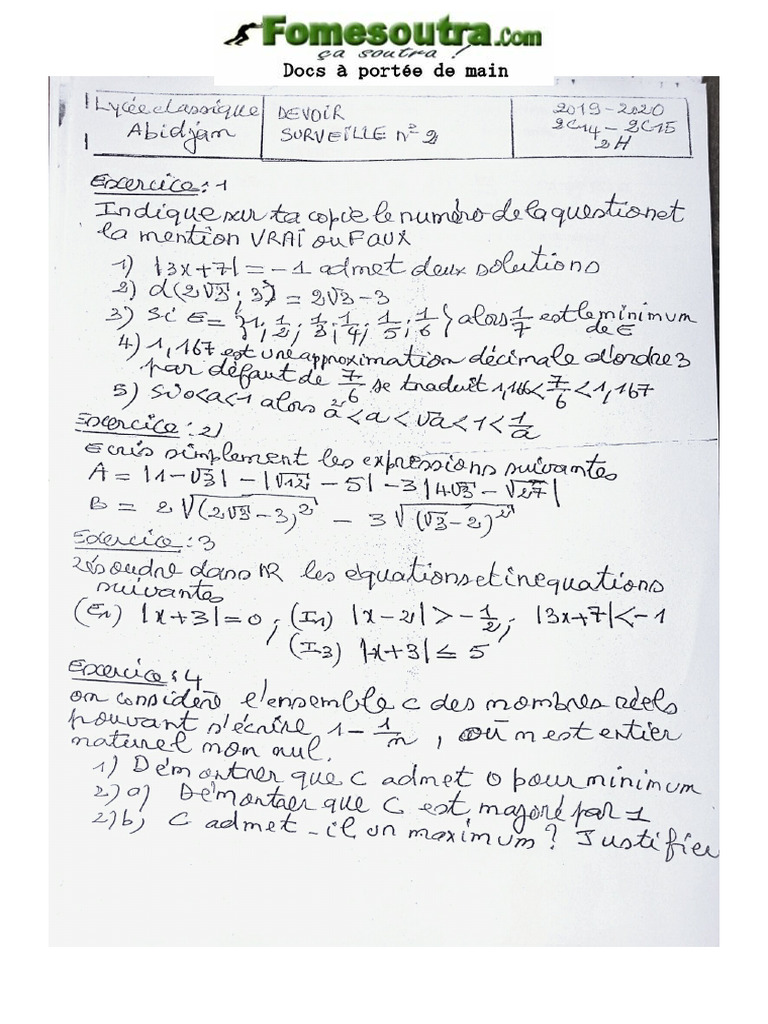 Fomesoutra.Com
ça soutra !
Docs à portée de main
Lycée classique Abidjan
DEVOIR SURVEILLE N° 2
2019-2020 2C14 - 2C15 2H
Exercice : 1
Indique sur ta copie le numéro de la question et
la mention VRAI ou FAUX
1) |3x+7| = -1 admet deux solutions
2) d(2√3 ; 3) = 2√3 - 3
3) Si E = {1; 1/2; 1/3; 1/4; 1/5; 1/6} alors 1/7 est le minimum de E
4) 1,167 est une approximation décimale d'ordre 3
par défaut de 7/6 se traduit 1,166 < 7/6 < 1,167
5) Si 0<a<1 alors a² < a < √a < 1 < 1/a
Exercice : 2)
Ecris simplement les expressions suivantes
A = |1-√3| - |√12 - 5| - 3|4√3 - √27|
B = 2√(2√3-3)² - 3√(√3-2)²
Exercice : 3
Résoudre dans IR les équations et inéquations
suivantes
(E1) |x+3| = 0 ; (I1) |x-2| > -1/2 ; |3x+7| < -1
(I3) |x+3| ≤ 5
Exercice : 4
on considère l'ensemble C des nombres réels
pouvant s'écrire 1 - 1/n , où n est entier
naturel non nul.
1) Démontrer que C admet 0 pour minimum
2) a) Démontrer que C est majoré par 1
2) b) C admet-il un maximum ? Justifier